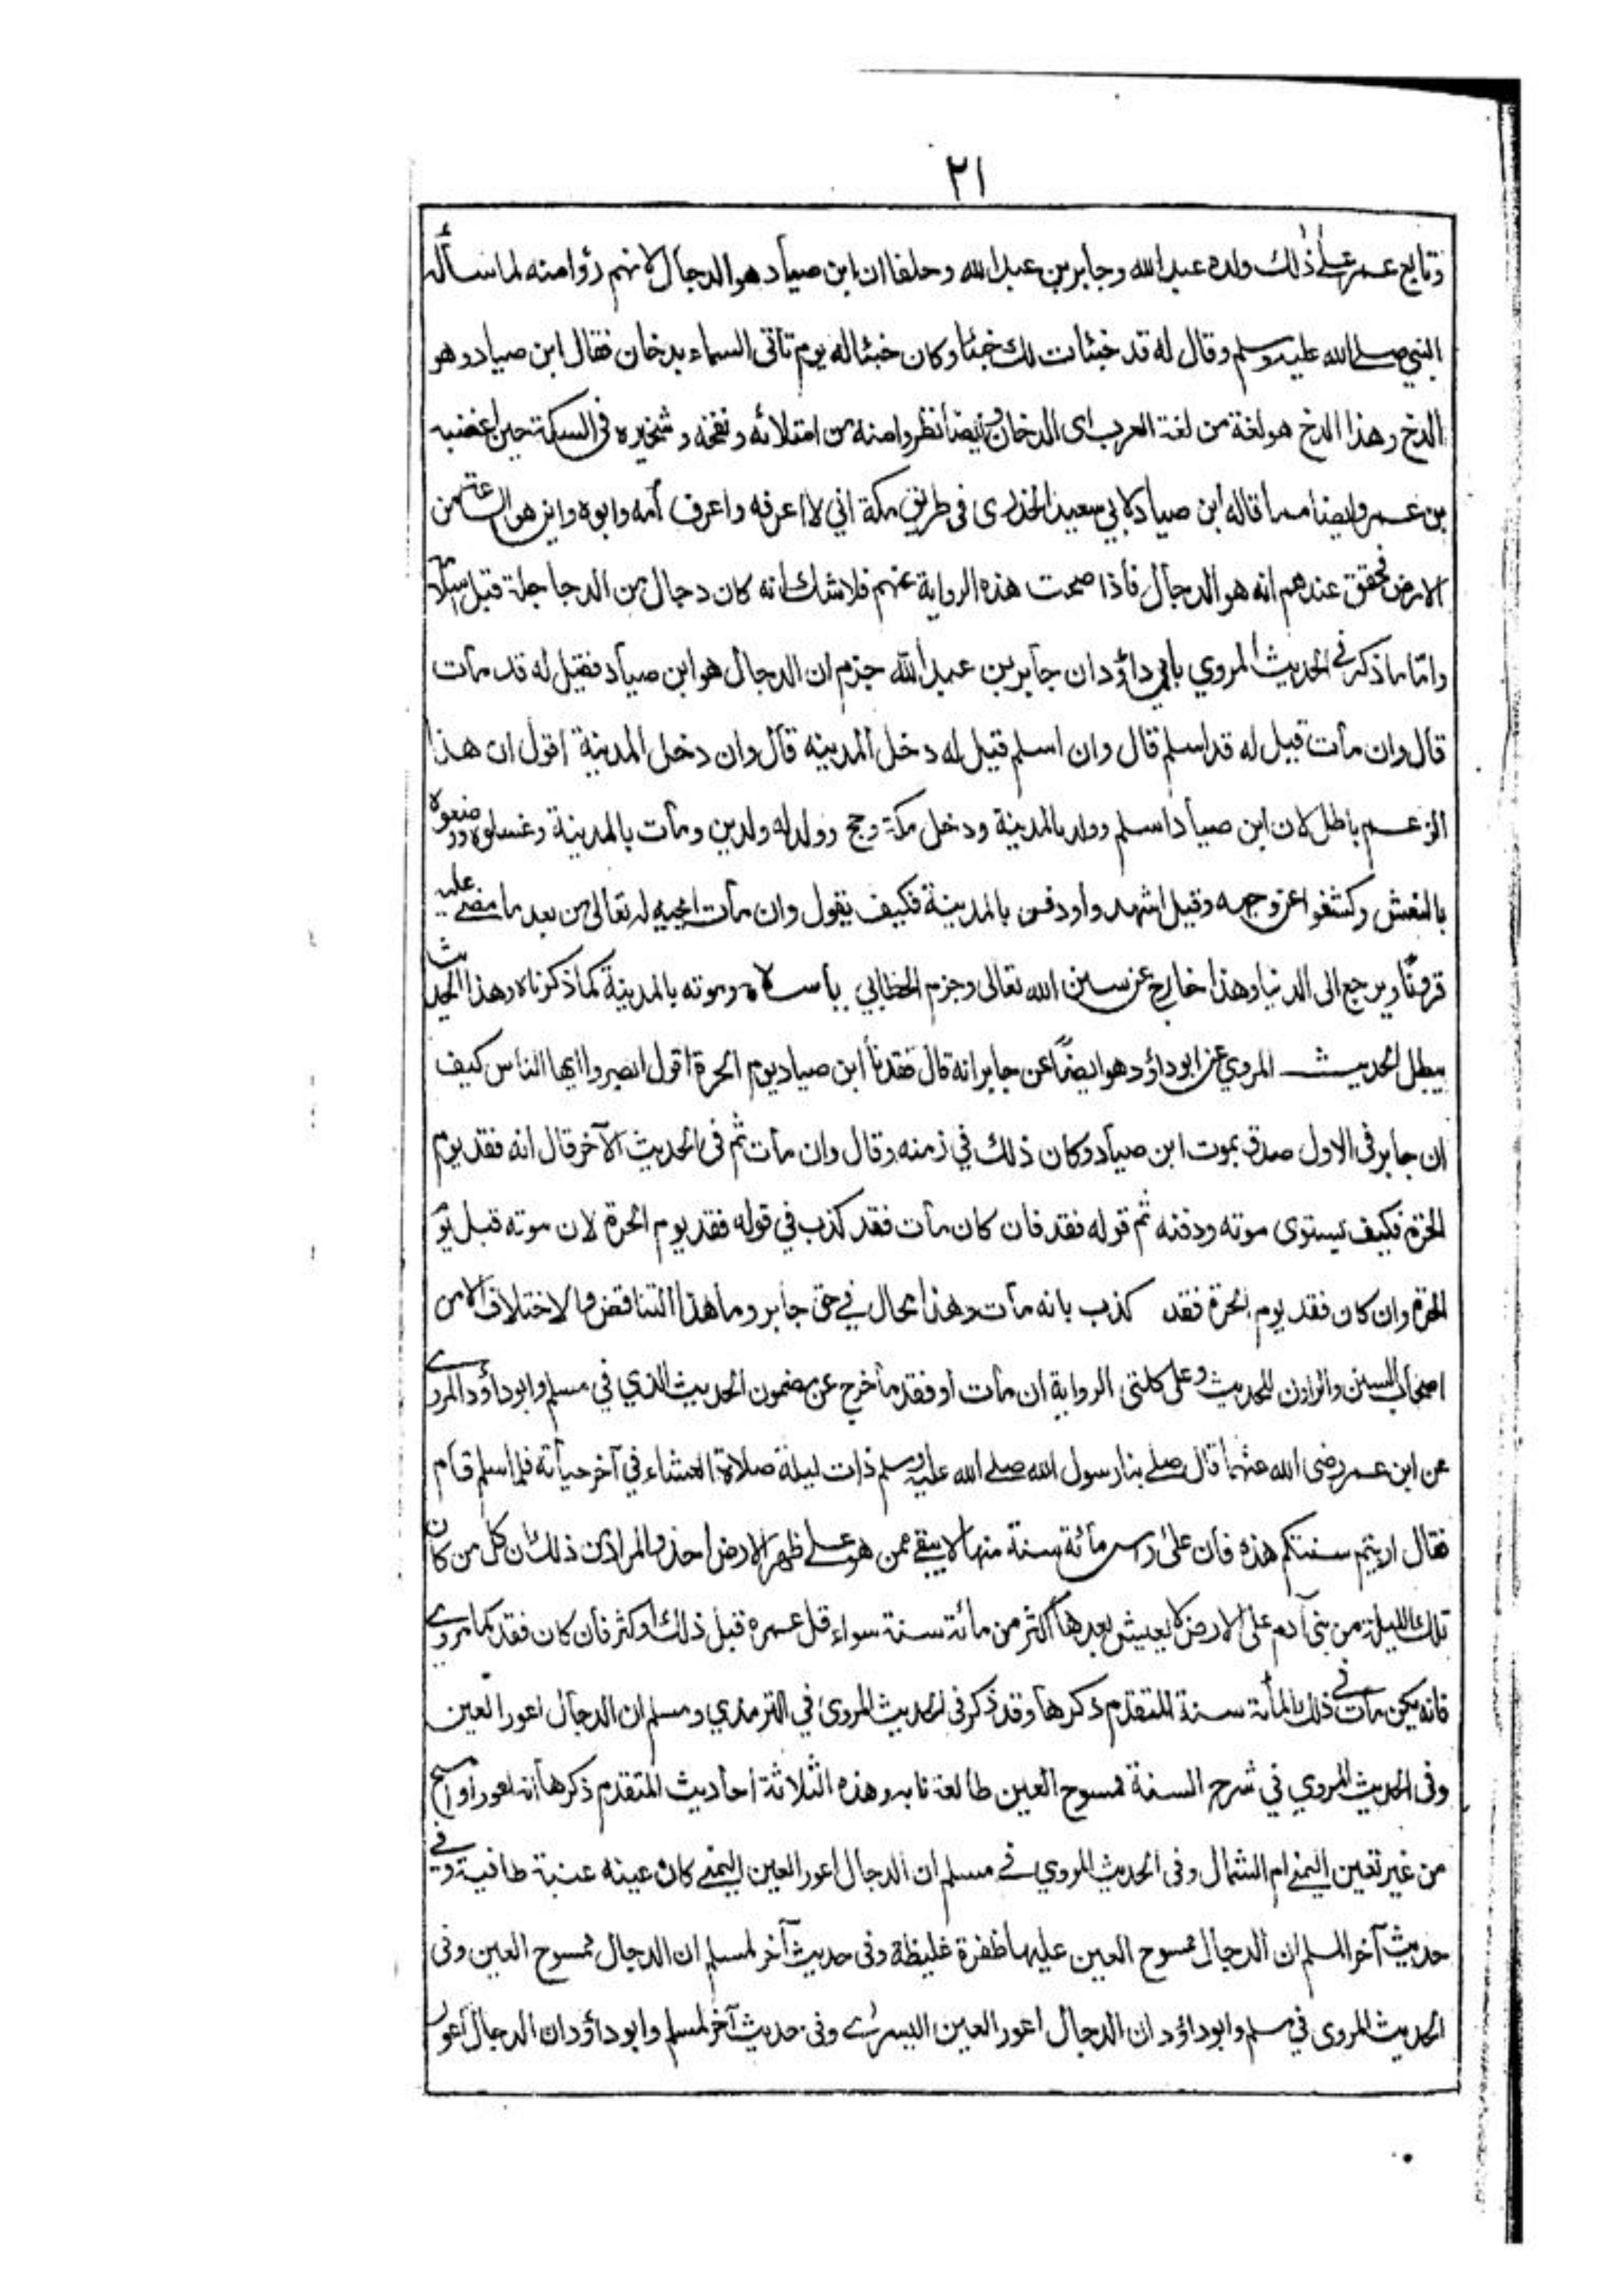 ٢١
وتابع عمر على ذلك ولده عبد الله وجابر بن عبد الله وحلفا ان ابن صياد هو الدجال لانهم رؤا منه لما سأله
النبي صلے الله عليه وسلم وقال له قد خبئات لك خبئا وكان خبئاله يوم تأتى السماء بدخان فقال ابن صياد وهو
الدخ وهذا الدخ هو لغة من لغة العرب اى الدخان وايضا نظروا منه من امتلائه ونفخه وشخيره فى السكة حين اغضبه
بن عمر وايضا مما قاله ابن صياد لابي سعيد الخدرى فى طريق مكة اني لا اعرفه واعرف أمه وابوه واين هو الساعة من
الارض فحقق عندهم انه هو الدجال فأذا صحت هذه الرواية عنهم فلا شك انه كان دجال من الدجاجلة قبل اسلامه
وامّا ما ذكر في الحديث المروي بابي داؤد ان جابر بن عبد الله جزم ان الدجال هو ابن صياد فقيل له قد مات
قال وان مات قيل له قد اسلم قال وان اسلم قيل له دخل المدينه قال وان دخل المدينة اقول ان هذا
الزعم باطل لان ابن صياد اسلم وولد بالمدينة ودخل مكة وحج وولد له ولدين ومات بالمدينة وغسلوه ووضعوه
بالنعش وكشفوا عن وجهه وقيل اشهدوا ودفن بالمدينة فكيف يقول وان مات ايحييه له تعالى من بعد ما مضے عليه
قرونًا ويرجع الى الدنيا وهذا خارج عن سنن الله تعالى وجزم الخطابي باسلامه وموته بالمدينة كما ذكرناه وهذا الحديث
يبطل الحديث المروي عن ابو داؤد هو ايضًا عن جابر انه قال فقدنا ابن صياد يوم الحرة اقول انصروا ايها الناس كيف
ان جابر فى الاول صدق بموت ابن صياد وكان ذلك في زمنه وقال وان مات ثم فى الحديث الآخر قال انه فقد يوم
الحرة فكيف يستوى موته ودفنه ثم قوله فقد فان كان مات فقد كذب في قوله فقد يوم الحرة لان موته قبل يوم
الحرة وان كان فقد يوم الحرة فقد كذب بانه مات وهذا محال في حق جابر وما هذا التناقض والاختلاف الا من
اصحاب السنن والراوين للحديث وعلى كلتى الرواية ان مات او فقد ما خرج عن مضمون الحديث الذي في مسلم وابو داؤد المروے
عن ابن عمر رضى الله عنهما قال صلے بنا رسول الله صلے الله عليه وسلم ذات ليلة صلاة العشاء في آخر حياته فلما سلم قام
فقال اريتم سنتكم هذه فان على راس مائة سنة منها لا يبقے ممن هو علے ظهر الارض احد والمراد من ذلك ان كل من كان
تلك الليلة من بنى آدم على الارض لا يعيش بعدها اكثر من مائة سنة سواء قل عمره قبل ذلك او كثر فان كان فقد كما مروے
فانه يكن مات في ذلك المائة سنة المتقدم ذكرها وقد ذكر فى الحديث المروى في الترمذي ومسلم ان الدجال اعور العين
وفى الحديث المروي في شرح السنة ممسوح العين طالعة نابه وهذه الثلاثة احاديث المتقدم ذكرها انه اعور او امسح
من غير تعين اليمنے ام الشمال وفى الحديث المروي فے مسلم ان الدجال اعور العين اليمنے كان عينه عنبة طافية وفے
حديث آخر المسلم ان الدجال ممسوح العين عليها ظفرة غليظة وفى حديث آخر لمسلم ان الدجال ممسوح العين وفى
الحديث المروى في مسلم وابو داؤد ان الدجال اعور العين اليسرے وفى حديث آخر لمسلم وابو داؤد ان الدجال اعور